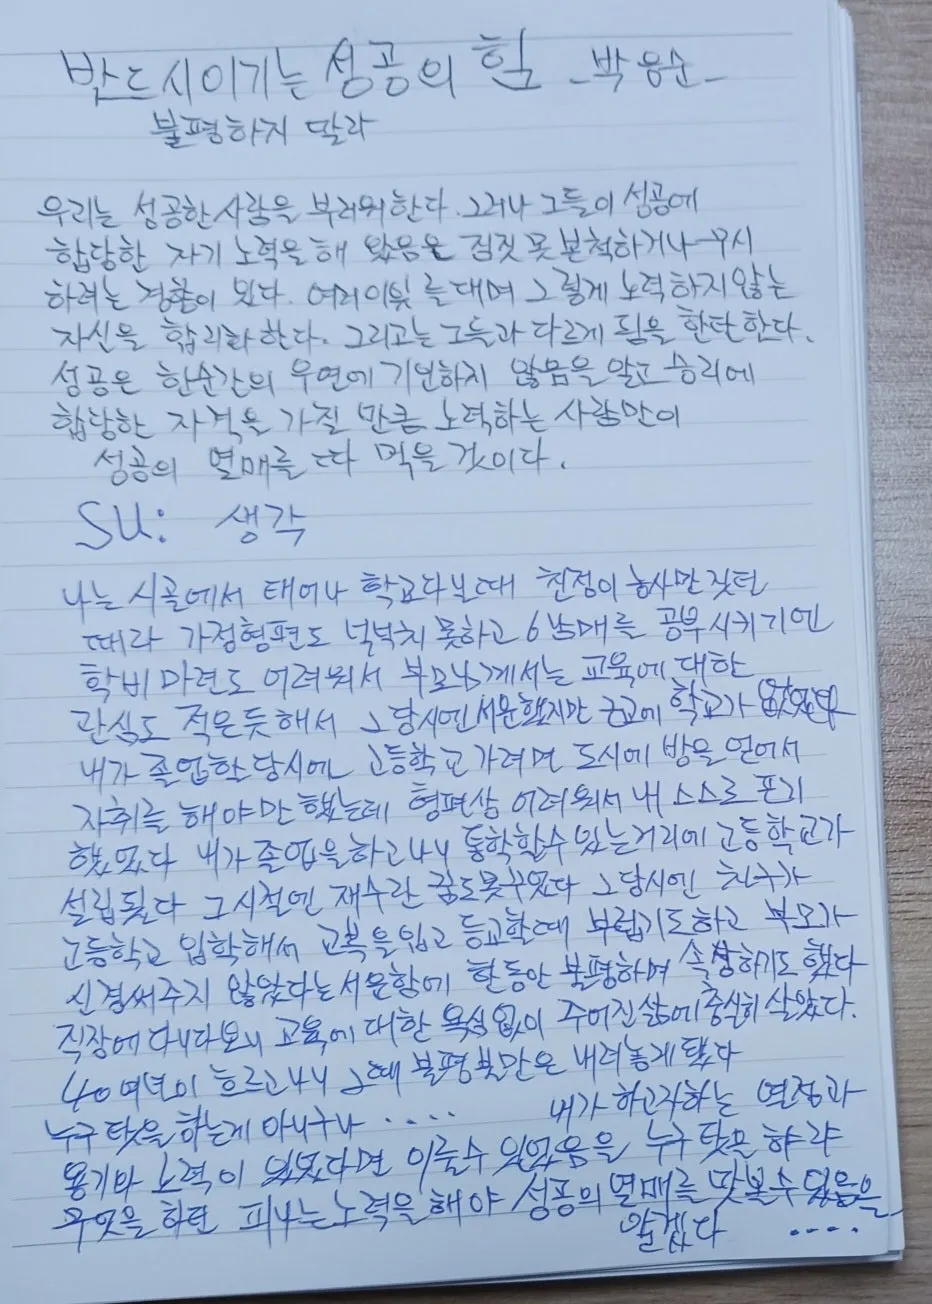 반드시 이기는 성공의 힘 - 박용순 -
불평하지 말라
우리는 성공한 사람을 부러워 한다. 그러나 그들이 성공에
합당한 자기 노력을 해 왔음은 짐짓 못 본척하거나 무시
하려는 경향이 있다. 여러 이유를 대며 그렇게 노력하지 않는
자신을 합리화 한다. 그리고는 그들과 다르게 됨을 한탄 한다.
성공은 한순간의 우연에 기인하지 않음을 알고 승리에
합당한 자격을 가질 만큼 노력하는 사람만이
성공의 열매를 따 먹을 것이다.
SU: 생각
나는 시골에서 태어나 학교다닐때 친정이 농사만 짓던
때라 가정형편도 넉넉치 못하고 6남매를 공부시키기엔
학비 마련도 어려워서 부모님께서는 교육에 대한
관심도 적은듯해서 그당시엔 서운했지만 근교에 학교가 없었다
내가 졸업한 당시에 고등학교 가려면 도시에 방을 얻어서
자취를 해야만 했는데 형편상 어려워서 내 스스로 포기
했었다 내가 졸업을 하고나니 통학할수 있는 거리에 고등학교가
설립됬다 그시절엔 재수란 꿈도못꾸었다 그당시엔 친구가
고등학교 입학해서 교복을 입고 등교할때 부럽기도하고 부모가
신경써주지 않았다는 서운함에 한동안 불평하며 속상하기도 했다
직장에 다니다보니 교육에 대한 욕심 없이 주어진 삶에 충실히 살았다.
40여년이 흐르고나니 그때 불평불만은 내려놓게 됐다
누구 탓을 하는게 아니구나 .... 내가 하고자하는 열정과
용기와 노력이 있었다면 이룰수 있었음을 누구 탓을 하랴
무엇을 하던 피나는 노력을 해야 성공의 열매를 맛볼수 있음을
알겠다 ....